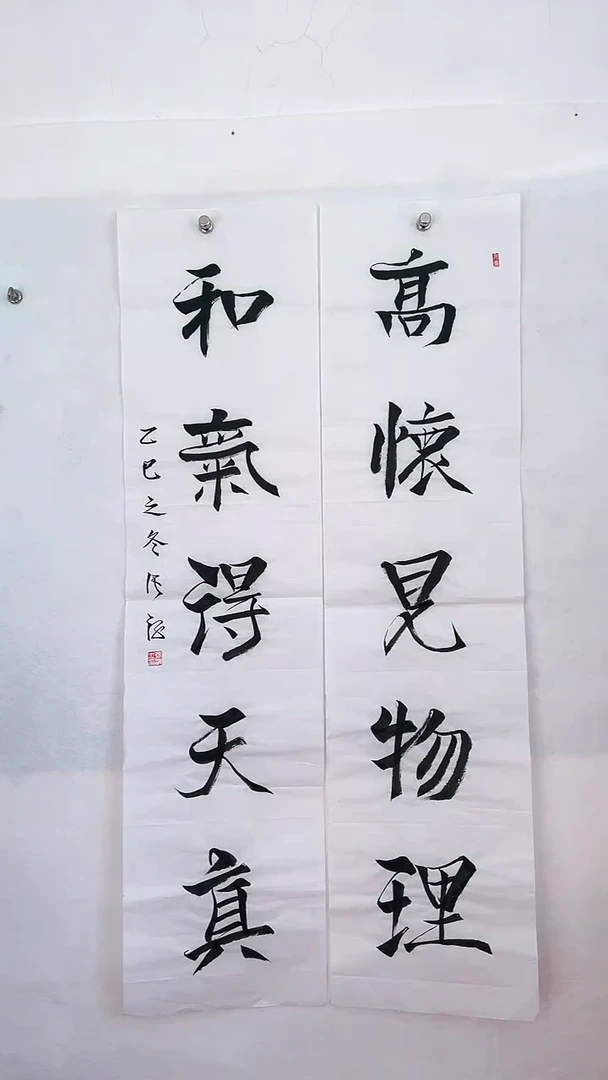 高懷見物理
和氣得天真
乙巳之冬